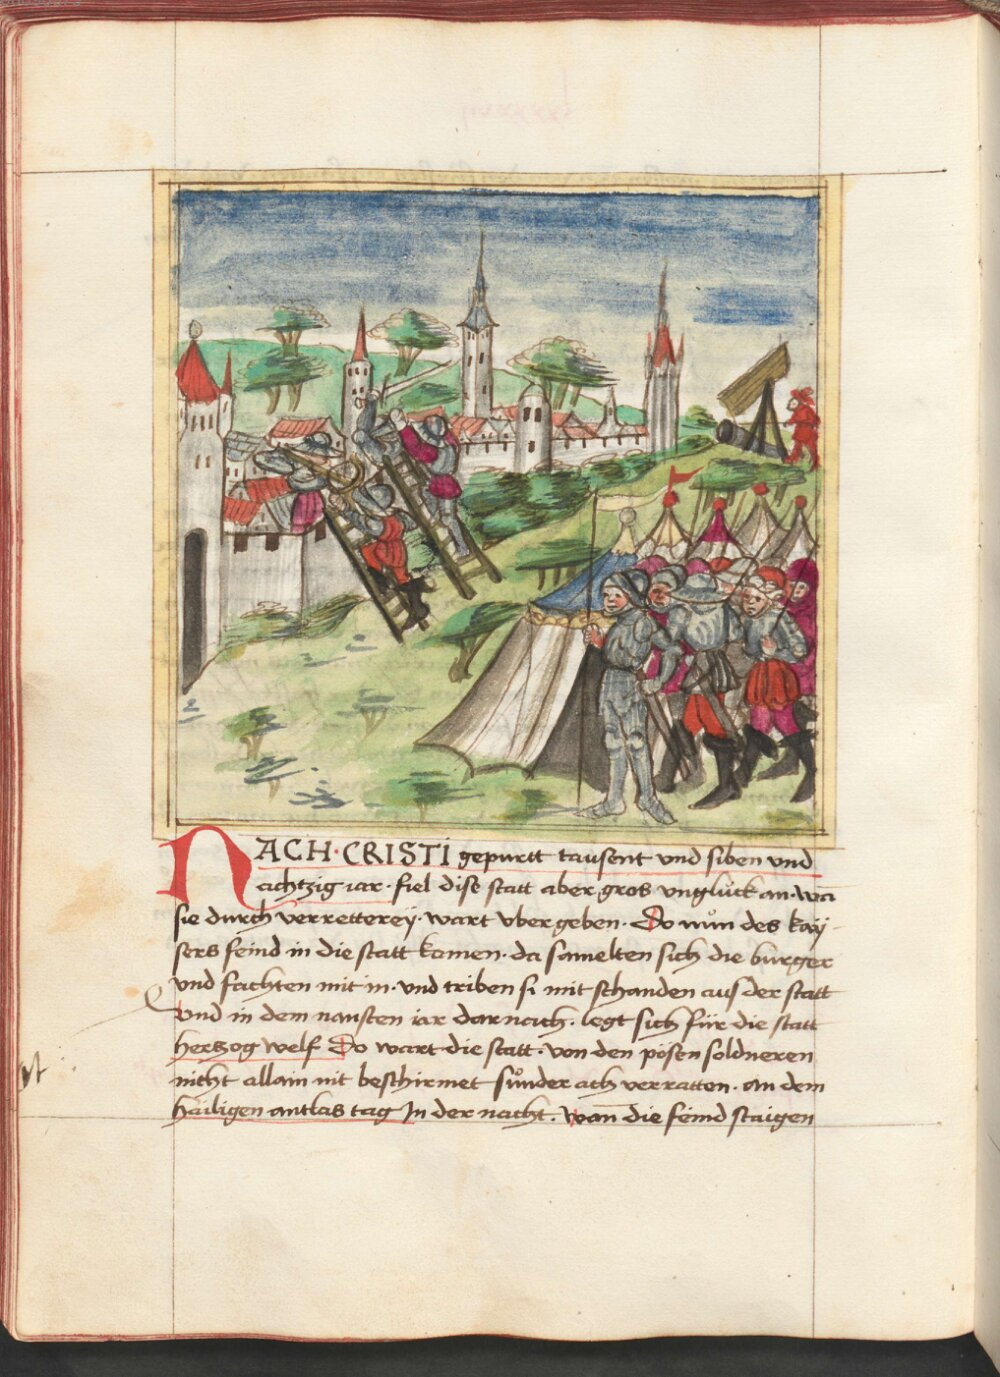 NACH · CRISTI gepurtt tausent und siben und
achtzig iar · fiel dise statt aber gros unglück an · wa
sie durch verretterey · wart uber geben · Do nůn des kaÿ-
sers feind in die statt kamen · da samelten sich die burger
und fachten mit in · und triben si mit schanden aus der statt
Und in dem nansten iar darnach · legt sich für die statt
hertzog welf Do wart die statt · von den pösen soldneren
nicht allain nit beschirmet sůnder ach verratten · an dem
hailigen antlas tag In der nacht · wan die feind staigen